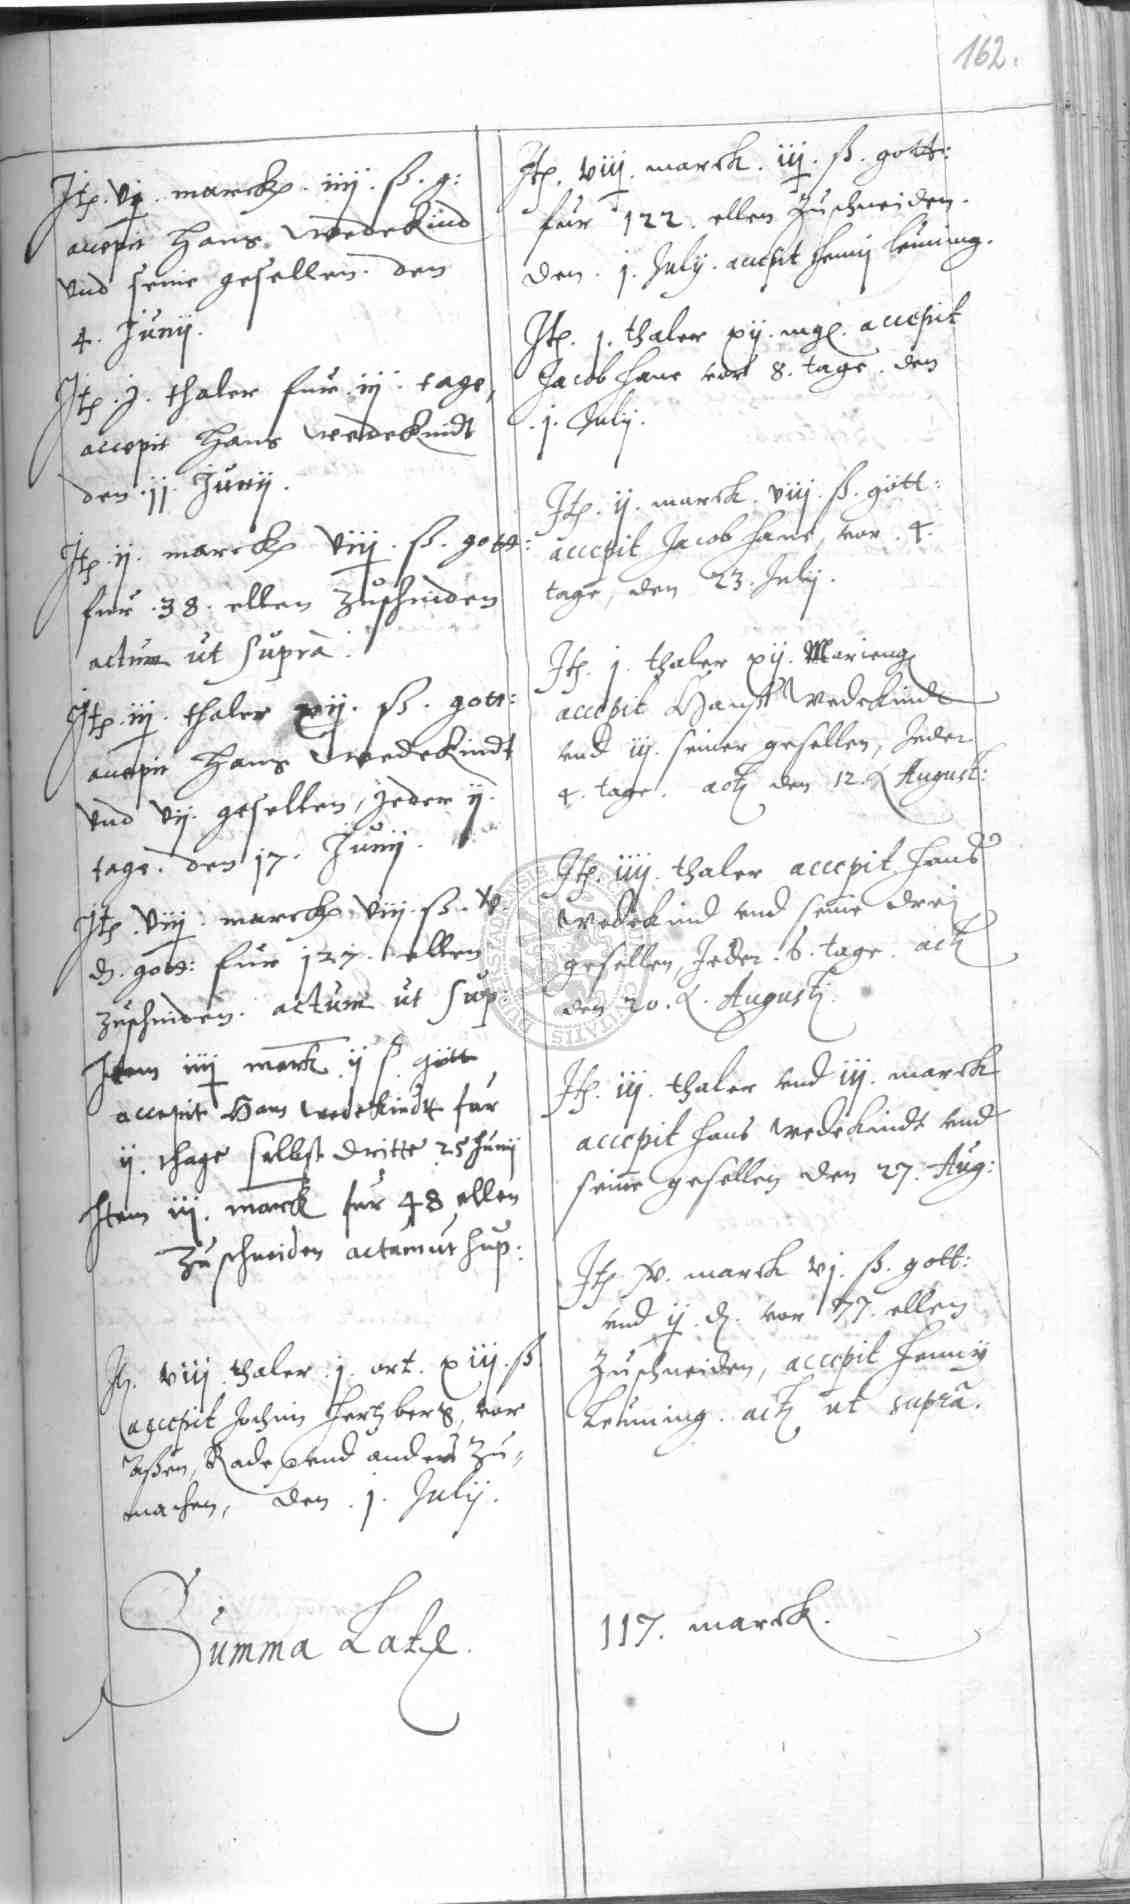 162.
Itȩ. vj. marckȩ. iiij. ß. g:
accepit Hans Wedekind
vnd seine gesellen. den
4. Junij.
Itȩ. j. thaler fur. iij. tage,
accepit Hans Wedekindt
den. jj. Junij.
Itȩ. ij. marckȩ viij. ß. gott:
fur. 38. ellen Zuschniden
actum ut suprà.
Itȩ. iij. thaler xvij. ß. gott:
accepit Hans Wedekindt
vnd vij. gesellen, Jeder ij.
tage. den 17. Junij.
Itȩ. viij. marckȩ. viij. ß. v.
₰. gott: fur 127. ellen
zuschniden. actum ut sup:
Item iiij marck ij ß gott
accepit Hans wedekindt fur
ij. thage selbst dritte 25 Junij
Item iij. marck fur 48 ellen
Zuschneiden actum ut sup:
Itȩ. viij thaler. j. ort. xiij. ß.
accepit Jochim Hertzberg, vor
Aßen, Rade vnd anders Zu„
machen, den. j. Julij.
Summa Latȩ.
Itȩ. viij. marck. iij. ß. gott:
fur 122. ellen Zuschneiden.
den. j. July. accepit Henny Leuning.
Itȩ. j. thaler xij. mgȩ. accepit
Jacob Hane vor 8. tage. den
. j. July.
Itȩ. ij. marck. viij. ß. gött:
accepit Jacob Hane, vor. 4.
tage, den 23. July.
Itȩ. j. thaler xij. Marieng
accepit Hanß Wedekindt
vnd iij. seiner gesellen, Jeder
4. tage. actȩ den 12. Augusti:
Itȩ. iiij. thaler accepit Hans
Wedekind vnd seine drej
gesellen, Jeder. 6. tage. actȩ
den 20. Augustj.
Itȩ. iij. thaler vnd iij. marck
accepit Hans Wedekindt vnd
seine gesellen den 27. Aug:
Itȩ. v. marck vj. ß. gott:
vnd ij. ₰. vor 77. ellen
Zuschneiden, accepit Henny
Leuning. actȩ ut suprà.
117. marck.